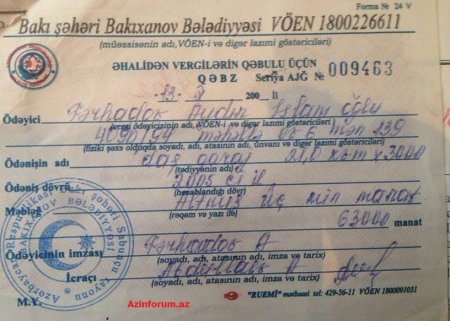 Forma № 24 V
Bakı şəhəri Bakıxanov Bələdiyyəsi VÖEN 1800226611
(müəssisənin adı, VÖEN-i və digər lazımi göstəriciləri)
ƏHALİDƏN VERGİLƏRİN QƏBULU ÜÇÜN
QƏBZ Seriya AJĞ № 009463
13 200 il
Ödəyici Fərhadov Aydın oğlu
(vergi ödəyicisinin adı, VÖEN-i və digər lazımi göstəriciləri)
məhəllə mən 139
(fiziki şəxs olduqda soyadı, adı, atasının adı, ünvanı və digər göstəriciləri)
Ödənişin adı daş qaraj 21,0 x 3000
(tədiyyənin adı)
Ödəniş dövrü 2005 il
(hesablandığı dövr)
Məbləğ Altmış üç min manat
(rəqəm və yazı ilə)
63000 manat
Ödəyicinin imzası Fərhadov A
(soyadı, adı, atasının adı, imza və tarix)
İcraçı
(soyadı, adı, imza və tarix)
M.Y.
Azinforum.az
"RUEMİ" mətbəəsi tel: 429-36-11 VÖEN 1800091031
Azərbaycan Respublikası Bakı şəhəri Sabunçu rayonu
BAKIXANOV BƏLƏDİYYƏSİ